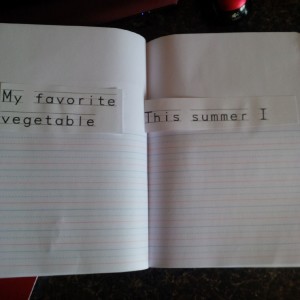 My favorite
vegetable
This summer I